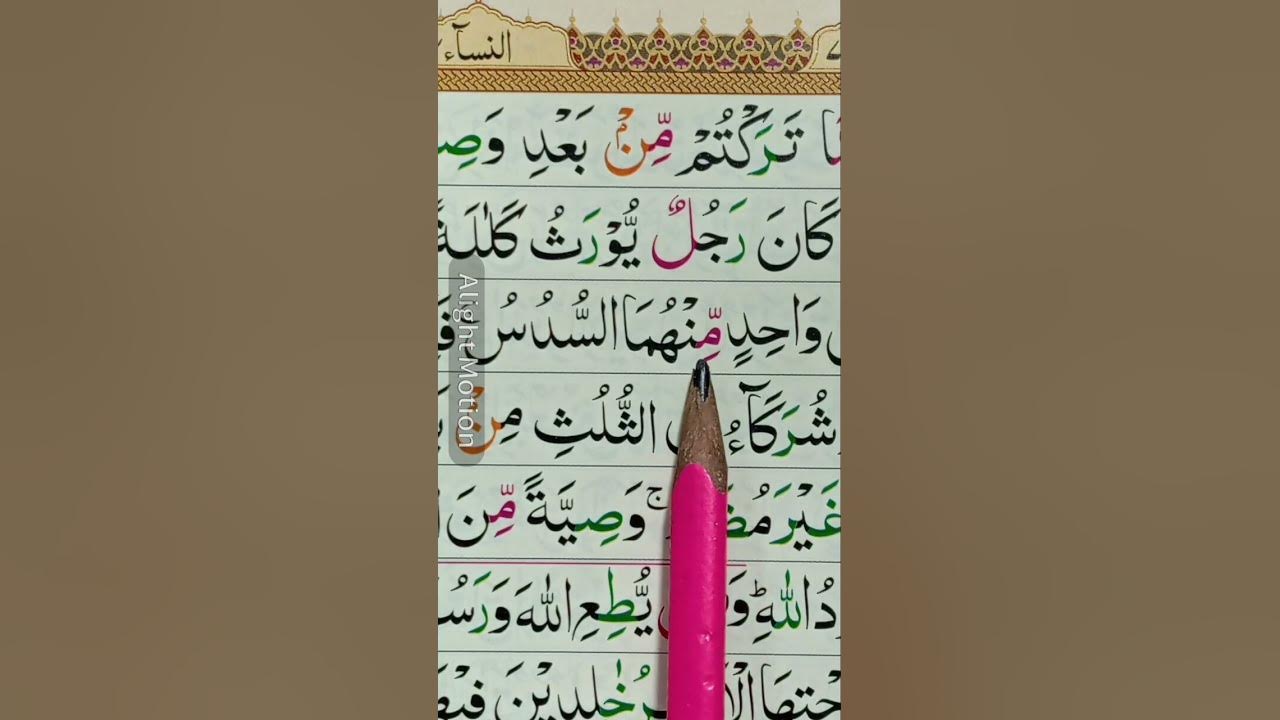 النسآء
تَرَكْتُمْ مِّنْۢ بَعْدِ وَصِ
كَانَ رَجُلٌ يُّوْرَثُ كَلٰلَةً
وَاحِدٍ مِّنْهُمَا السُّدُسُ فَ
شُرَكَآءُ الثُّلُثِ مِنْۢ
غَيْرَ ۚ وَصِيَّةً مِّنَ
اللّٰهِ ؕ يُّطِعِ اللّٰهَ وَرَسُ
خٰلِدِيْنَ فِيْهَ
Alight Motion